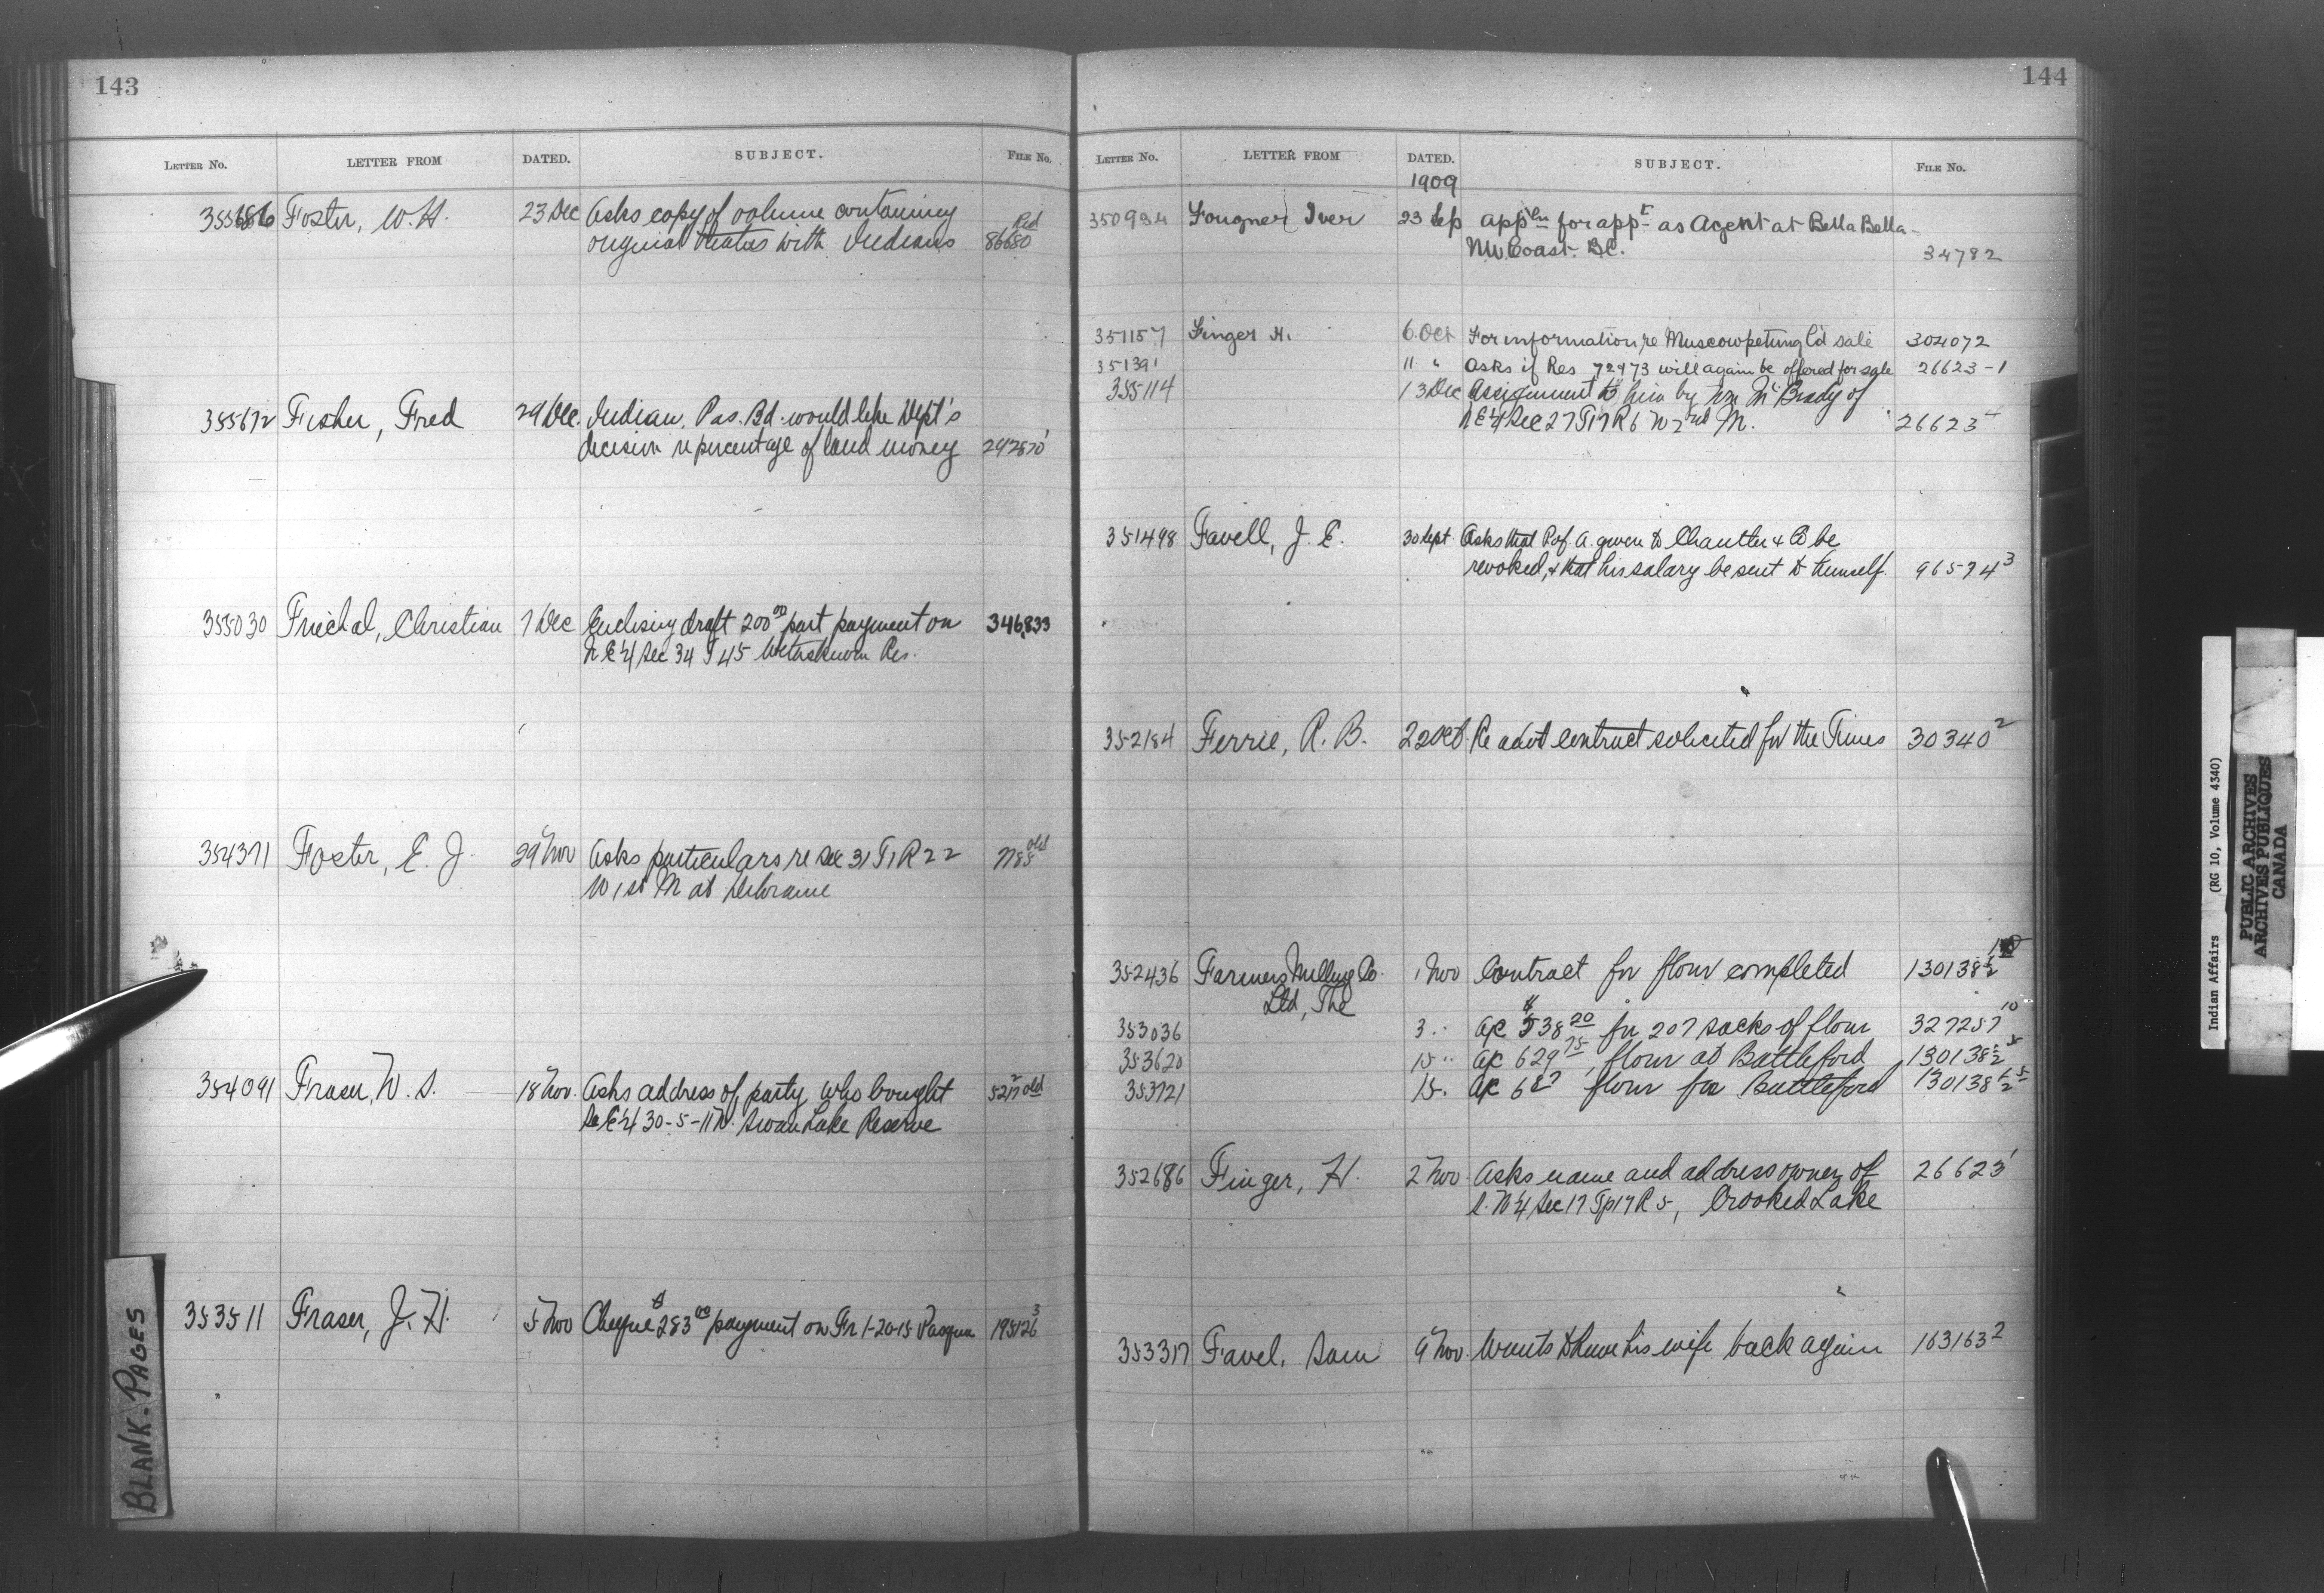 143
LETTER No. LETTER FROM DATED. SUBJECT. FILE No.
355686 Foster, W. H. 23 Dec Asks copy of volume containing
original treaties with Indians Red 86680
355672 Fisher, Fred 29 Dec. Indian, Pas. Bd. would like Dept's
decision re percentage of land money
355030 Christian 7 Dec Enclosing draft 200 00 part payment on 346,833
N E 1/4 Sec 34 T 45 Res.
354371 Foster, E. J. 29 Nov Asks particulars re Sec 31 T1 R 22 old
W 1st M at Deloraine
354091 Fraser, W. S. 18 Nov. Asks address of party who bought old
S E 1/4 30-5-11 W. Swan Lake Reserve
353511 Fraser, J. H. 5 Nov Cheque $283 00 payment on Fr 1-20-15 Pasqua 195126 3
BLANK-PAGES
144
LETTER No. LETTER FROM DATED. SUBJECT. FILE No.
1909
350934 Fougner Iver 23 Sep appln for appt as Agent at Bella Bella
NW Coast. B.C. 34782
351157 Finger H. 6 Oct For information re Muscowpetung l'd sale 304072
35139 11 " Asks if Res 72 & 73 will again be offered for sale 26623-1
355114 13 Dec Assignment to him by Wm McBrady of
N E 1/4 Sec 27 T17 R 6 W 2nd M. 26623 4
351498 Favell, J. E. 30 Sept. Asks that P of A. given to & Co be
revoked, & that his salary be sent to himself. 96574 3
352184 Ferrie, R. B. 22 Oct. Re advt contract solicited for the Times 30340 2
352436 Farmers Milling Co. 1 Nov Contract for flour completed 130138 1/2
Ltd, The
353036 3 " a/c $538 20 for 207 sacks of flour 327257 10
353620 15 " a/c 629 75, flour at Battleford 130138 1/2
353721 15 " a/c flour for Battleford 130138 1/2
352686 Finger, H. 2 Nov. Asks name and address owner of 26623 1
S. W 1/4 Sec 17 Tp 17 R 5, Crooked Lake
353317 Favel, Sam 9 Nov. Wants to have his wife back again 163163 2
Indian Affairs (RG 10, Volume 4340)
PUBLIC ARCHIVES
ARCHIVES PUBLIQUES
CANADA